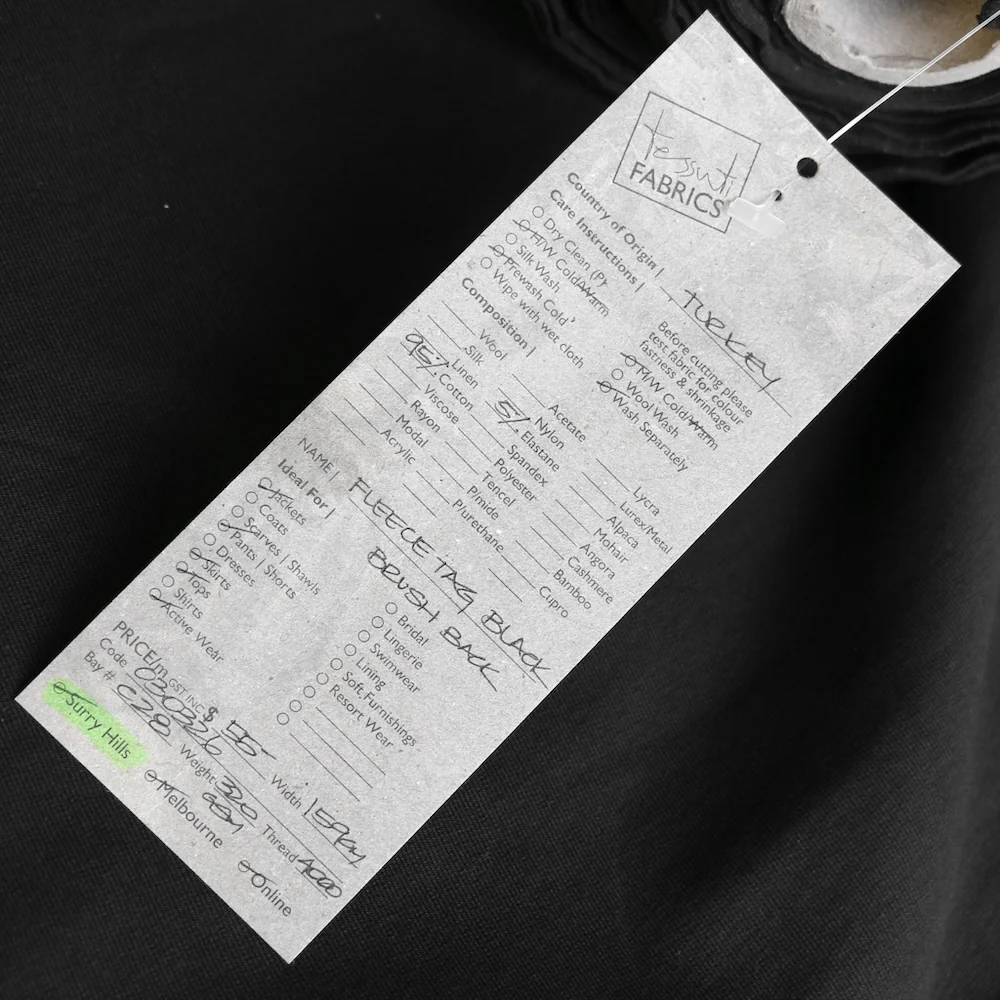 tessuti
FABRICS
Country of Origin | TURKEY
Care Instructions |
Dry Clean (P)
H/W Cold/Warm
Silk Wash
Prewash Cold
Wipe with wet cloth
Before cutting please
test fabric for colour
fastness & shrinkage
M/W Cold/Warm
Wool Wash
Wash Separately
Composition |
Wool
Silk
Linen
95% Cotton
Viscose
Rayon
Modal
Acrylic
Acetate
Nylon
5% Elastane
Spandex
Polyester
Tencel
P/mide
P/urethane
Lycra
Lurex/Metal
Alpaca
Mohair
Angora
Cashmere
Bamboo
Cupro
NAME | FLEECE TAG BLACK
BRUSH BACK
Ideal For |
Jackets
Coats
Scarves | Shawls
Pants | Shorts
Dresses
Skirts
Tops
Shirts
Active Wear
Bridal
Lingerie
Swimwear
Lining
Soft Furnishings
Resort Wear
PRICE/m GST INC $ 55-
Code 030326 Width 159cm
Bay # C28 Weight 320 GSM Thread 4000
Surry Hills Melbourne Online